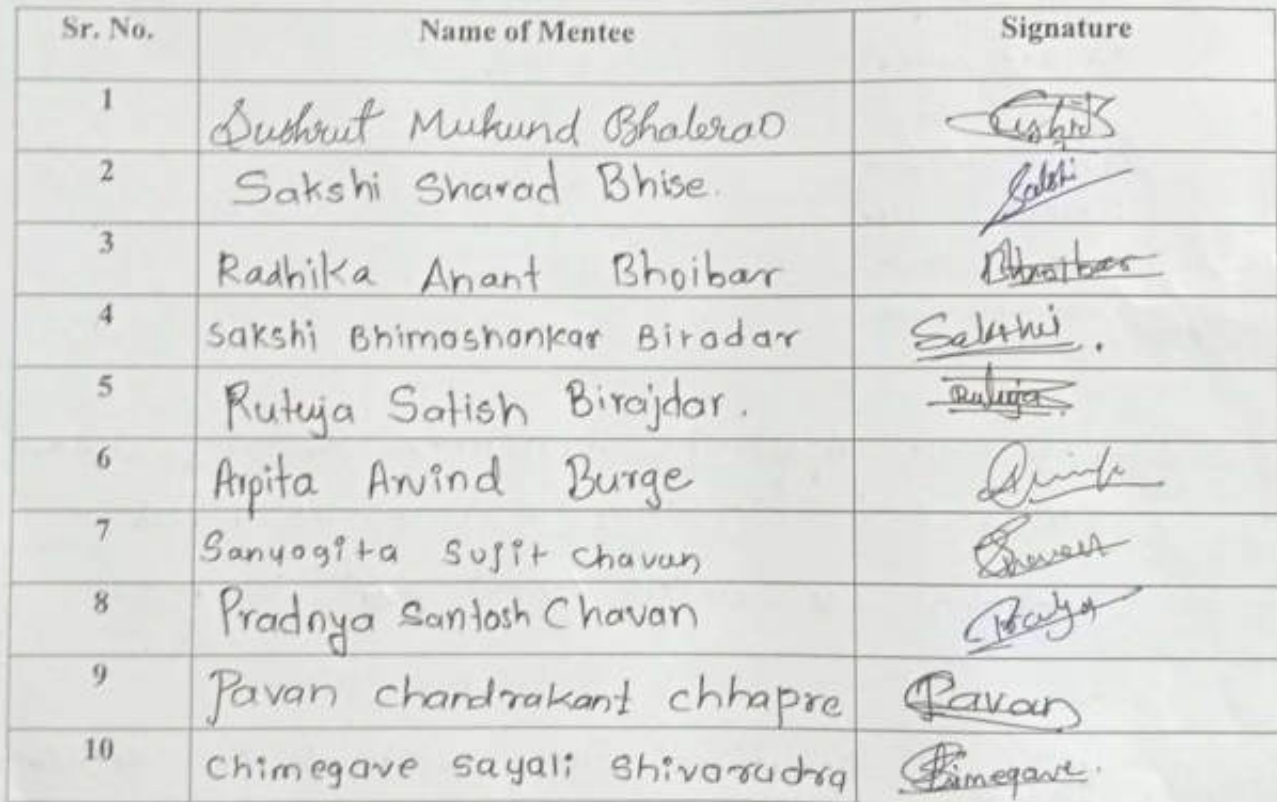 Sr. No. Name of Mentee Signature
1 Sushrut Mukund Bhalerao
2 Sakshi Sharad Bhise. Sakshi
3 Radhika Anant Bhoibar Bhoibar
4 Sakshi Bhimashankar Biradar Sakshi.
5 Rutuja Satish Birajdar. Rutuja
6 Arpita Arvind Burge
7 Sanyogita Sujit Chavan
8 Pradnya Santosh Chavan
9 Pavan chandrakant chhapre Pavan
10 Chimegave Sayali Shivarudra Chimegave.